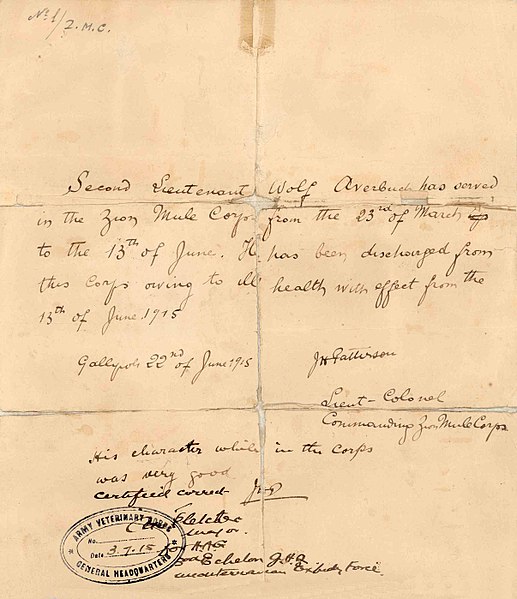 No 1/Z.M.C.
Second Lieutenant Wolf Averbuch has served
in the Zion Mule Corps from the 23rd of March
to the 13th of June. He has been discharged from
this Corps owing to ill health with effect from the
13th of June 1915
Gallipoli 22nd of June 1915
JHPatterson
Lieut-Colonel
Commanding Zion Mule Corps
His character while in the Corps
was very good
certified correct JHP
Fletcher
Major
for HAG
Echelon GHQ
Mediterranean Expedy Force.
ARMY VETERINARY CORPS
No.
Date 3.7.15
GENERAL HEADQUARTERS